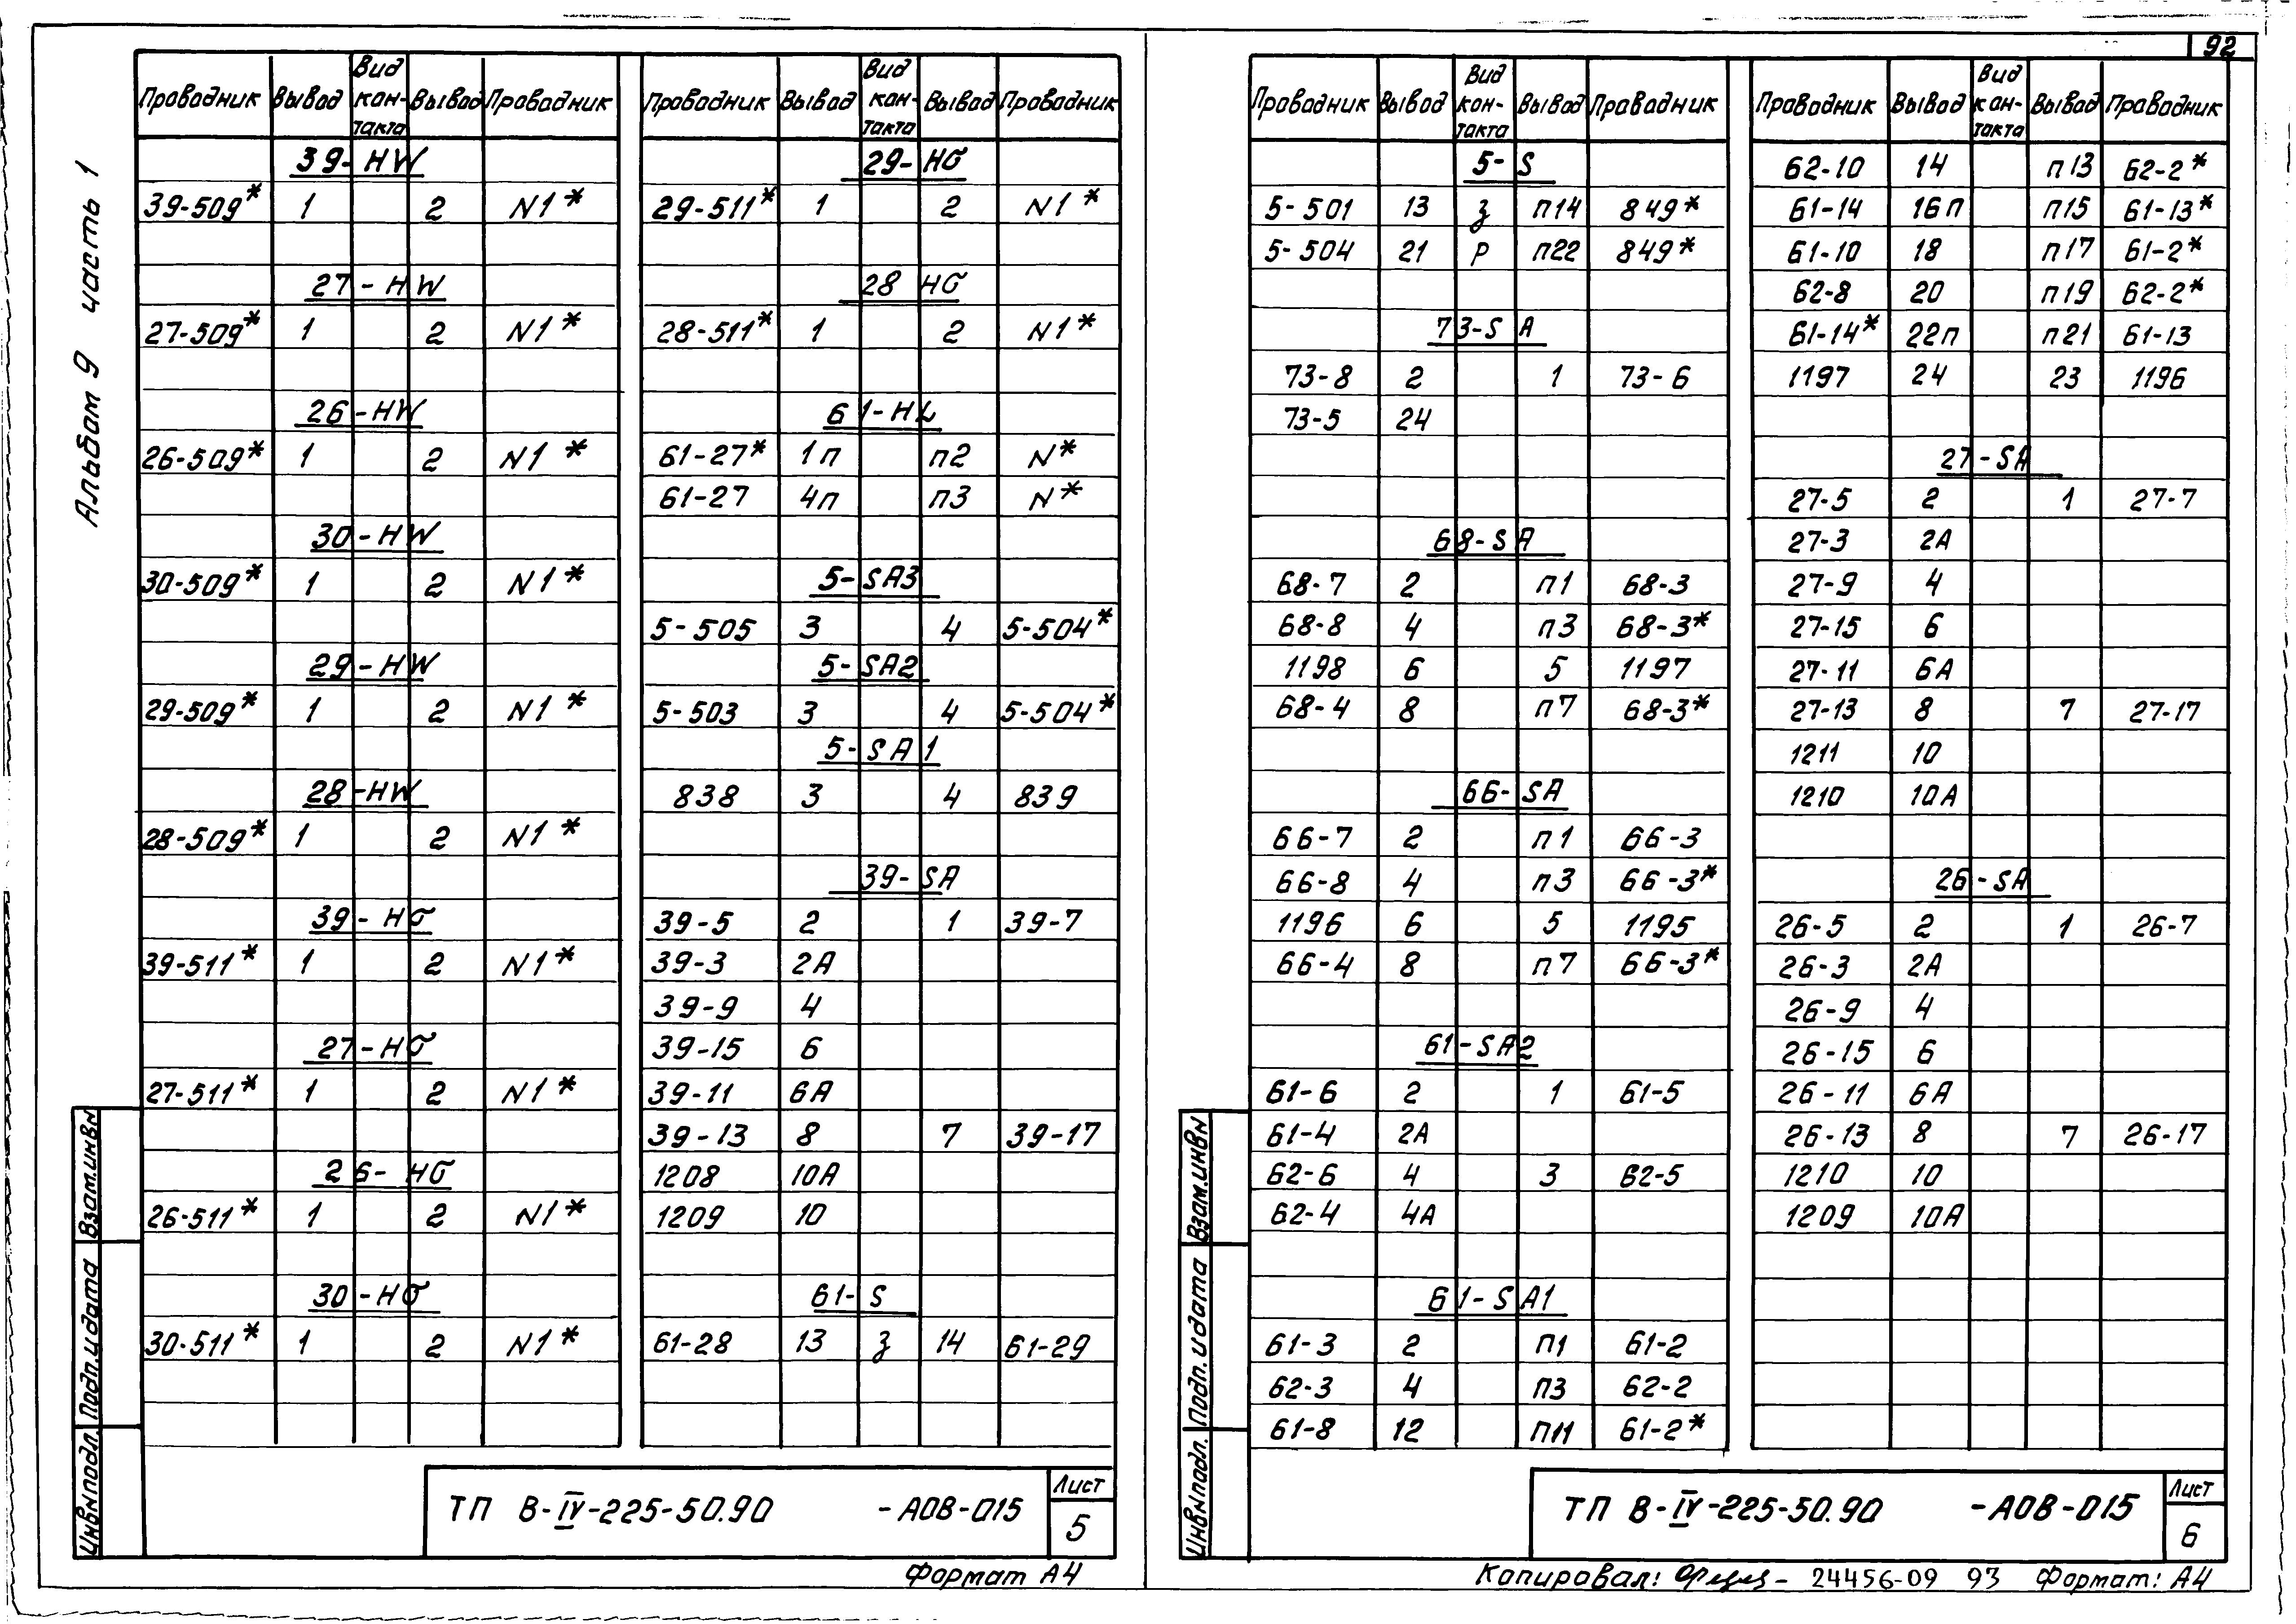 92
Альбом 9 часть 1
Проводник Вывод Вид кон-такта Вывод Проводник
39-HW
39-509* 1 2 N1*
27-HW
27-509* 1 2 N1*
26-HW
26-509* 1 2 N1*
30-HW
30-509* 1 2 N1*
29-HW
29-509* 1 2 N1*
28-HW
28-509* 1 2 N1*
39-HG
39-511* 1 2 N1*
27-HG
27-511* 1 2 N1*
26-HG
26-511* 1 2 N1*
30-HG
30-511* 1 2 N1*
Проводник Вывод Вид кон-такта Вывод Проводник
29-HG
29-511* 1 2 N1*
28 HG
28-511* 1 2 N1*
61-HL
61-27* 1п п2 N*
61-27 4п п3 N*
5-SA3
5-505 3 4 5-504*
5-SA2
5-503 3 4 5-504*
5-SA1
838 3 4 839
39-SA
39-5 2 1 39-7
39-3 2A
39-9 4
39-15 6
39-11 6A
39-13 8 7 39-17
1208 10A
1209 10
61-S
61-28 13 з 14 61-29
Взам.инв№
Подп. и дата
Инв№подл.
ТП В-IV-225-50.90 -АОВ-015
Лист
5
Формат А4
Проводник Вывод Вид кон-такта Вывод Проводник
5-S
5-501 13 з п14 849*
5-504 21 р п22 849*
73-SA
73-8 2 1 73-6
73-5 24
68-SA
68-7 2 п1 68-3
68-8 4 п3 68-3*
1198 6 5 1197
68-4 8 п7 68-3*
66-SA
66-7 2 п1 66-3
66-8 4 п3 66-3*
1196 6 5 1195
66-4 8 п7 66-3*
61-SA2
61-6 2 1 61-5
61-4 2A
62-6 4 3 62-5
62-4 4A
61-SA1
61-3 2 п1 61-2
62-3 4 п3 62-2
61-8 12 п11 61-2*
Проводник Вывод Вид кон-такта Вывод Проводник
62-10 14 п13 62-2*
61-14 16п п15 61-13*
61-10 18 п17 61-2*
62-8 20 п19 62-2*
61-14* 22п п21 61-13
1197 24 23 1196
27-SA
27-5 2 1 27-7
27-3 2A
27-9 4
27-15 6
27-11 6A
27-13 8 7 27-17
1211 10
1210 10A
26-SA
26-5 2 1 26-7
26-3 2A
26-9 4
26-15 6
26-11 6A
26-13 8 7 26-17
1210 10
1209 10A
Взам.инв№
Подп. и дата
Инв№подл.
ТП В-IV-225-50.90 -АОВ-015
Лист
6
Копировал: 24456-09 93 Формат: А4